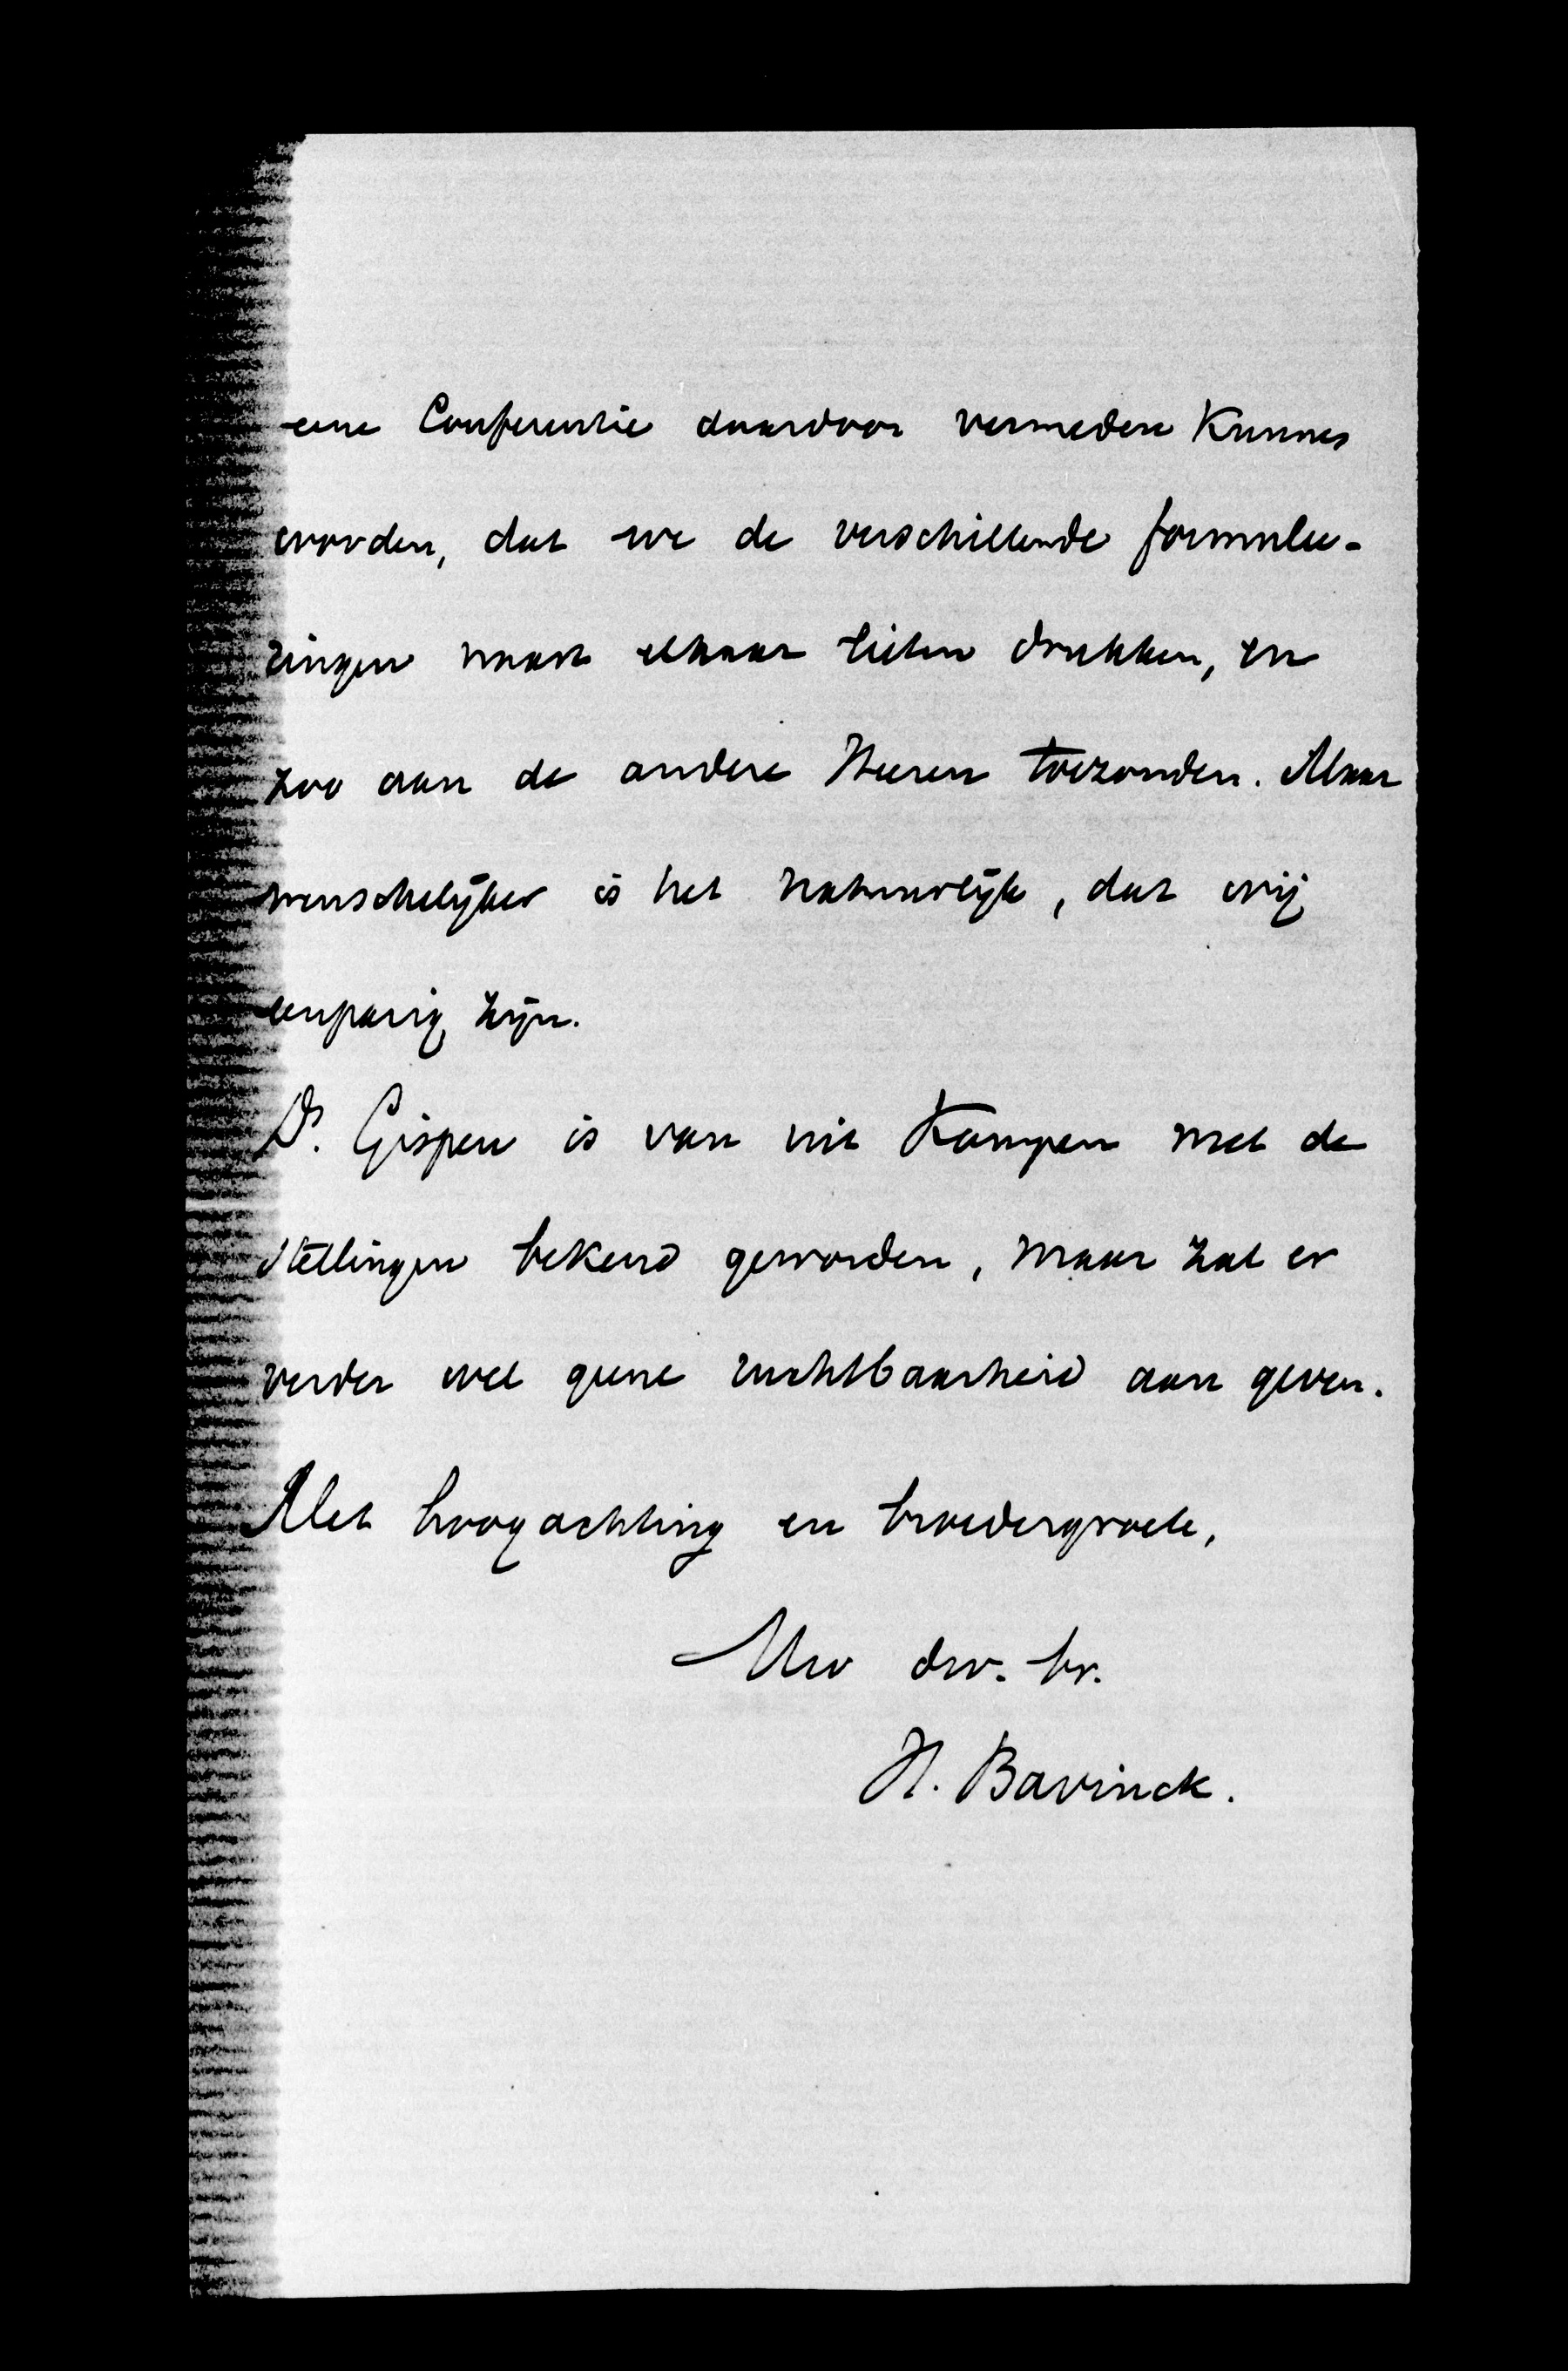 eene Conferentie daardoor vermeden kunnen
worden, dat we de verschillende formulee-
ringen naast elkaar lieten drukken, en
zoo aan de andere Heeren toezonden. Maar
wenschelijker is het natuurlijk, dat wij
eenparig zijn.
Ds. Gispen is van uit Kampen met de
Stellingen bekend geworden, maar zal er
verder wel geene ruchtbaarheid aan geven.
Met hoogachting en broedergroete,
Uw dw. br.
H. Bavinck.